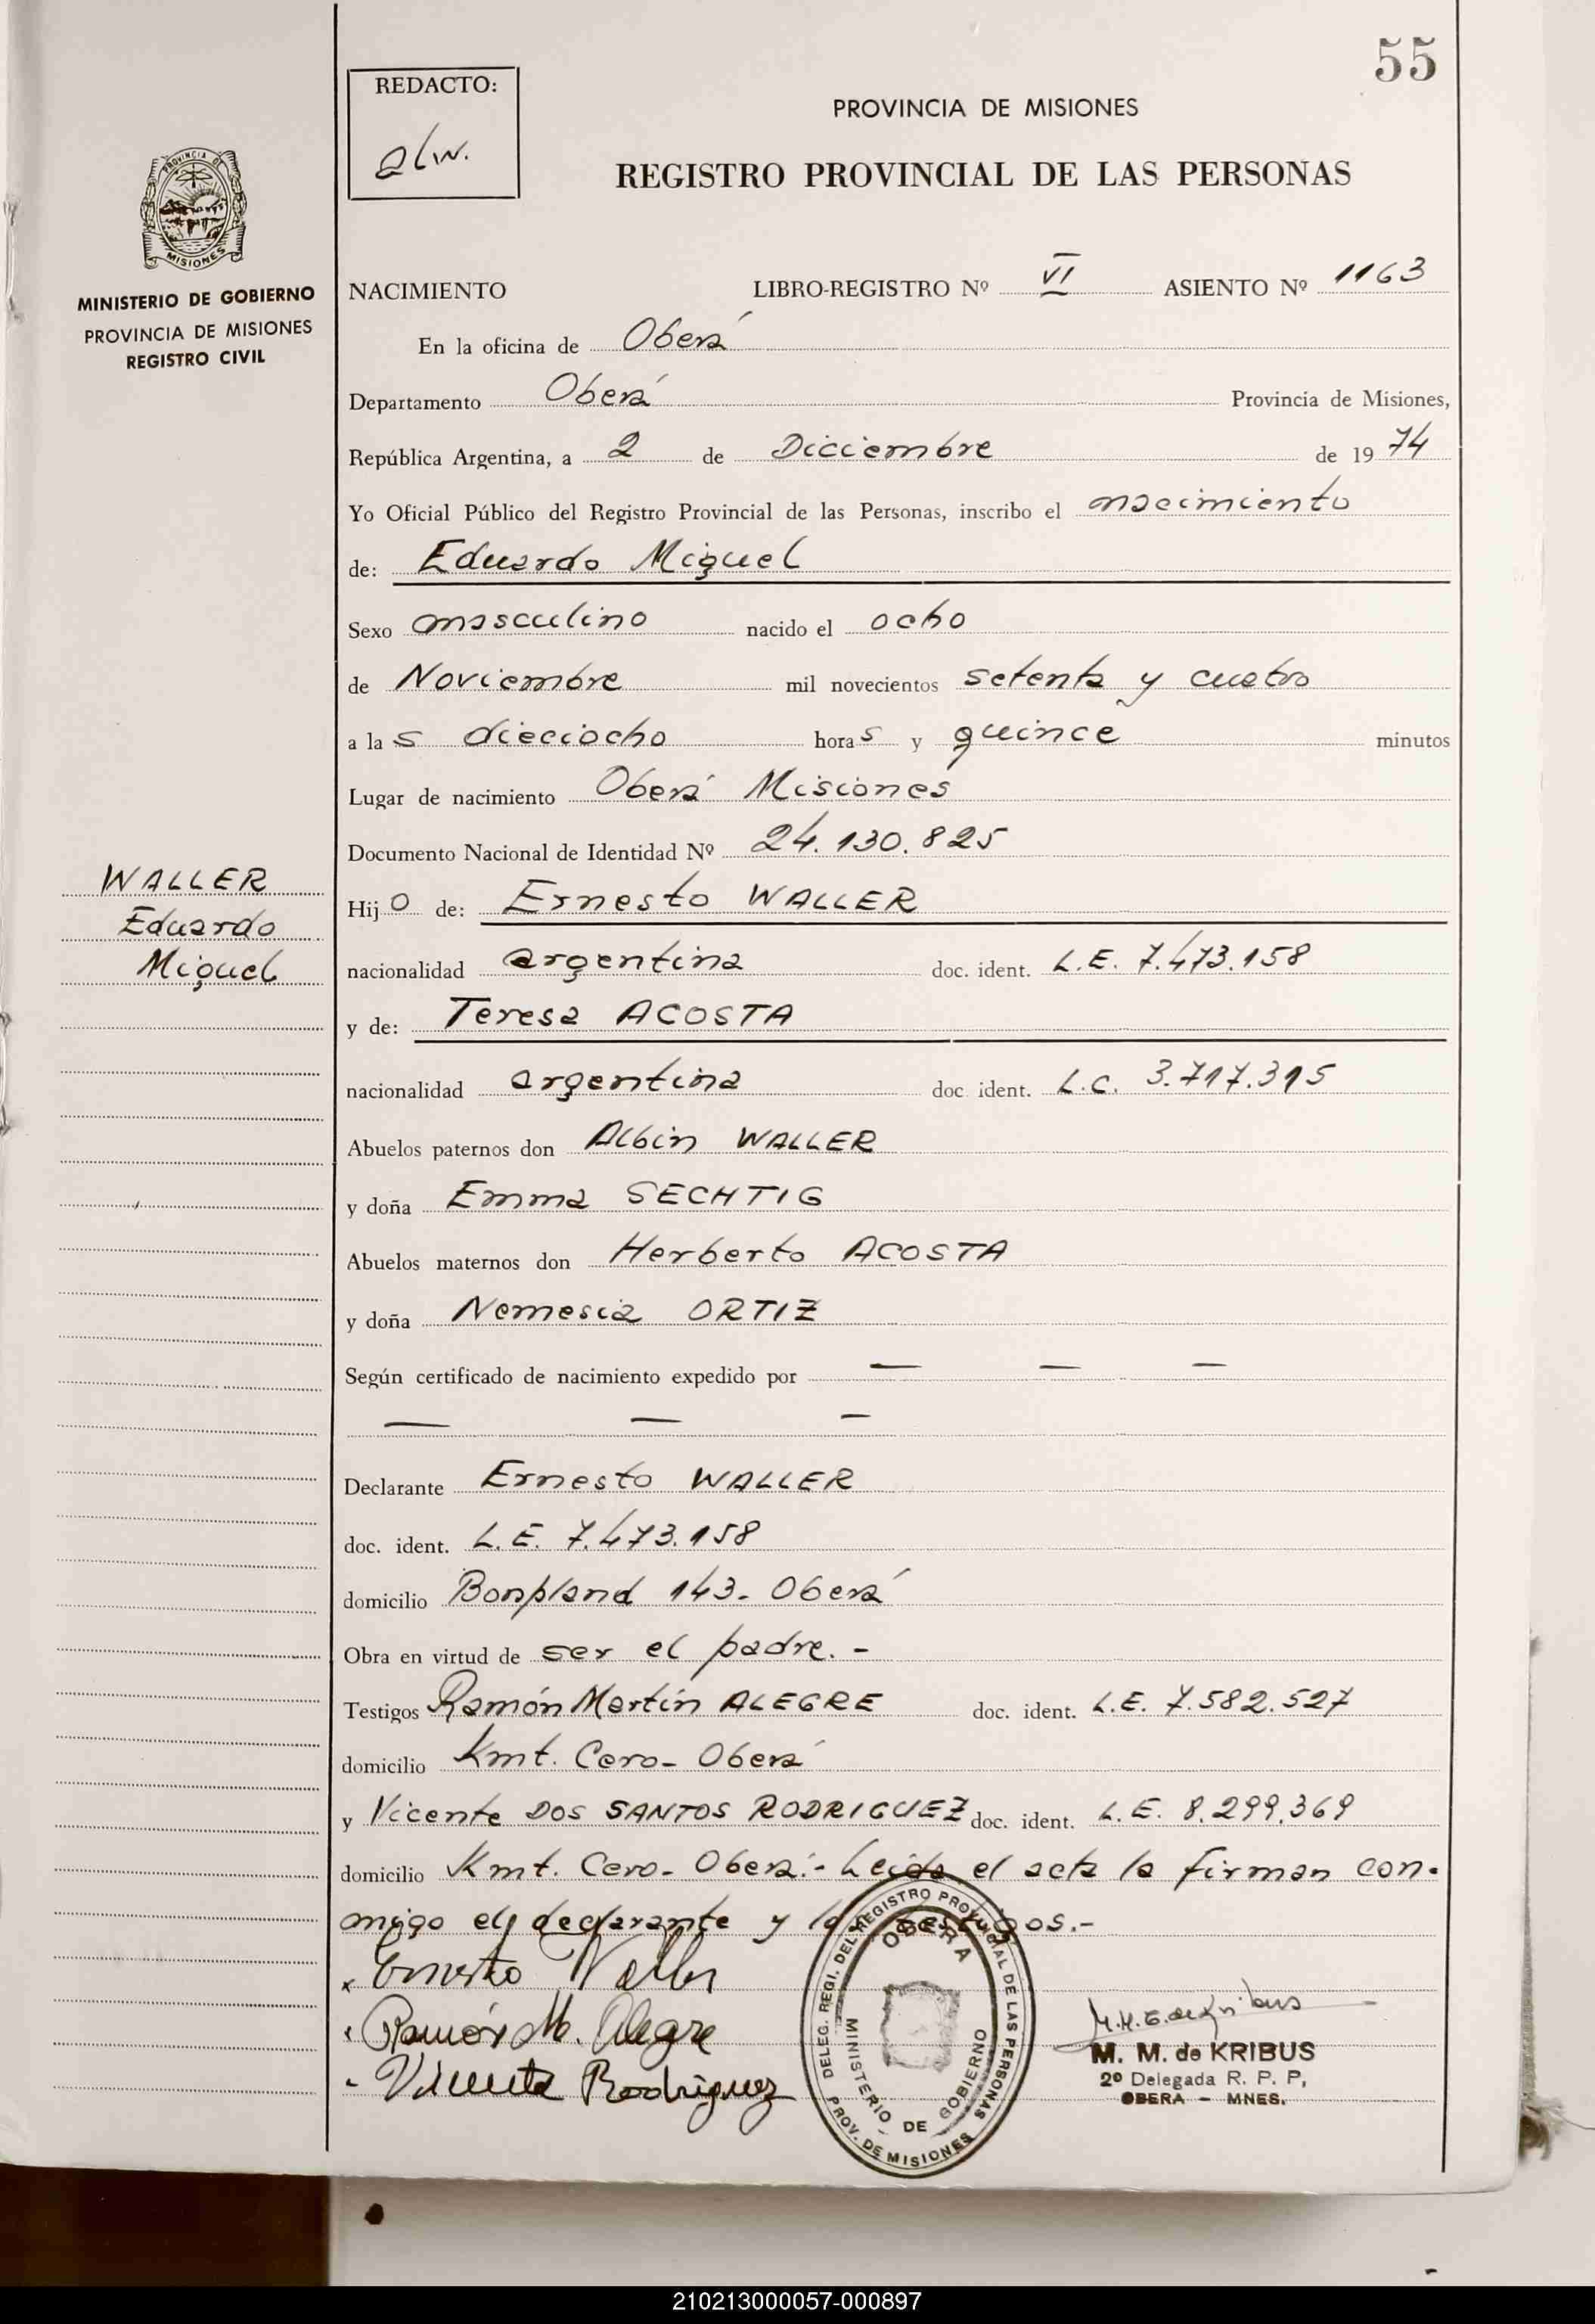 55
REDACTO:
alw.
PROVINCIA DE MISIONES
REGISTRO PROVINCIAL DE LAS PERSONAS
PROVINCIA DE
MISIONES
MINISTERIO DE GOBIERNO
PROVINCIA DE MISIONES
REGISTRO CIVIL
NACIMIENTO LIBRO-REGISTRO Nº VI ASIENTO Nº 1163
En la oficina de Oberá
Departamento Oberá Provincia de Misiones,
República Argentina, a 2 de Dicciembre de 19 74
Yo Oficial Público del Registro Provincial de las Personas, inscribo el nacimiento
de: Eduardo Miguel
Sexo masculino nacido el ocho
de Noviembre mil novecientos setenta y cuatro
a la s dieciocho hora s y quince minutos
Lugar de nacimiento Oberá Misiones
Documento Nacional de Identidad Nº 24.130.825
WALLER
Eduardo
Miguel
Hij o de: Ernesto WALLER
nacionalidad argentina doc. ident. L.E. 7.473.158
y de: Teresa ACOSTA
nacionalidad argentina doc. ident. L.C. 3.717.315
Abuelos paternos don Albin WALLER
y doña Emma SECHTIG
Abuelos maternos don Herberto ACOSTA
y doña Nemesia ORTIZ
Según certificado de nacimiento expedido por — — —
— — —
Declarante Ernesto WALLER
doc. ident. L.E. 7.473.158
domicilio Bonpland 143- Oberá
Obra en virtud de ser el padre.-
Testigos Ramón Martín ALEGRE doc. ident. L.E. 7.582.527
domicilio Kmt. Cero- Oberá
y Vicente DOS SANTOS RODRIGUEZ doc. ident. L.E. 8.299.369
domicilio Kmt. Cero- Oberá.- Leída el acta la firman con-
migo el declarante y los testigos.-
Ernesto Waller
Ramón M. Alegre
Vicente Rodriguez
DELEG. REGI. DEL REGISTRO PROVINCIAL DE LAS PERSONAS
OBERA
MINISTERIO DE GOBIERNO
PROV. DE MISIONES
M. M. de KRIBUS
2º Delegada R. P. P,
OBERA — MNES.
210213000057-000897